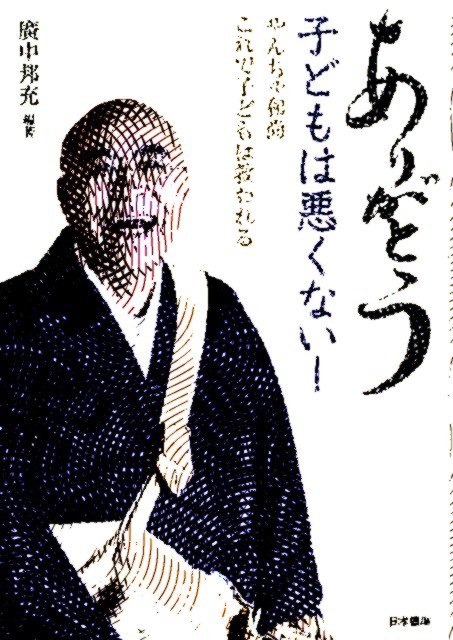 ありがとう
子どもは悪くない!
やんちゃ和尚
これで子どもは救われる
廣中邦充 編著